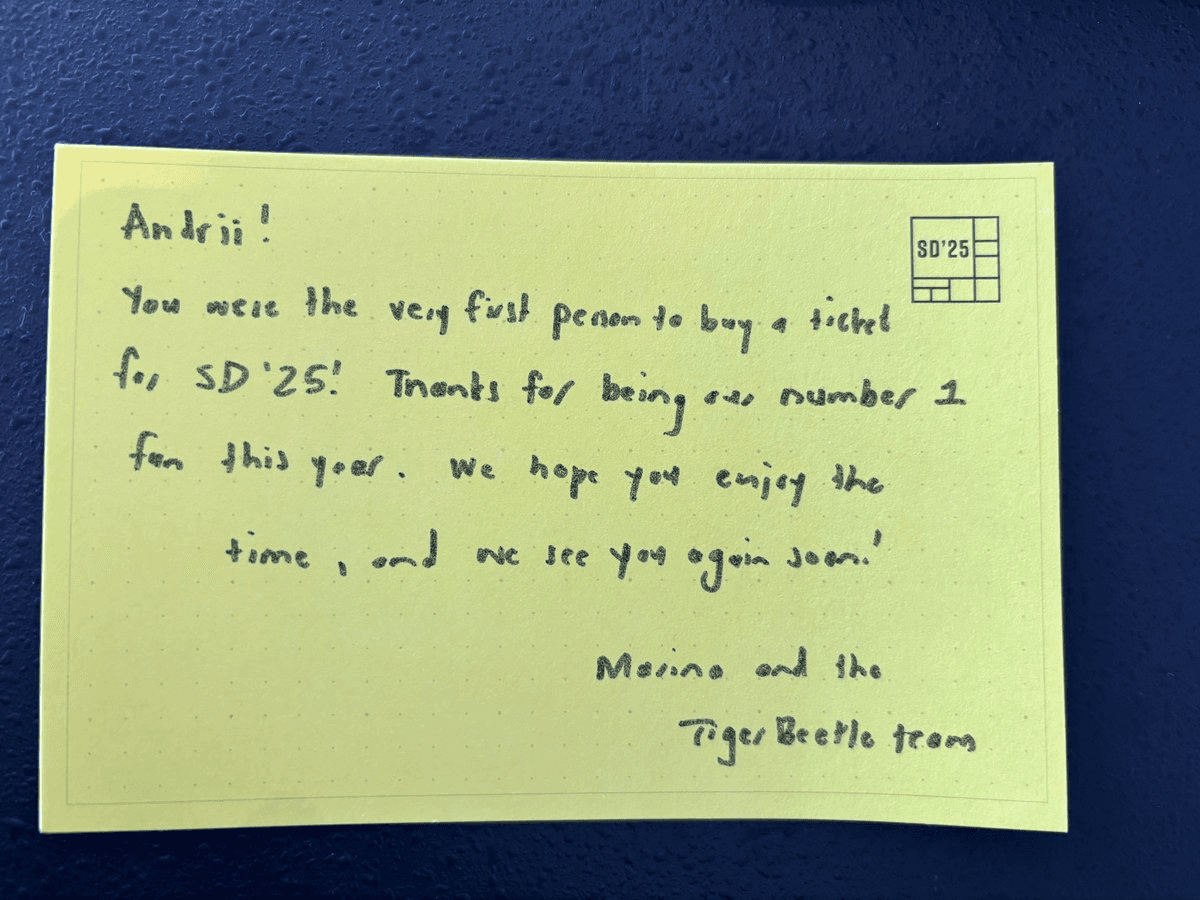 Andrii!
SD'25
You were the very first person to buy a ticket
for SD '25! Thanks for being our number 1
fan this year. We hope you enjoy the
time, and we see you again soon!
Marina and the
TigerBeetle team